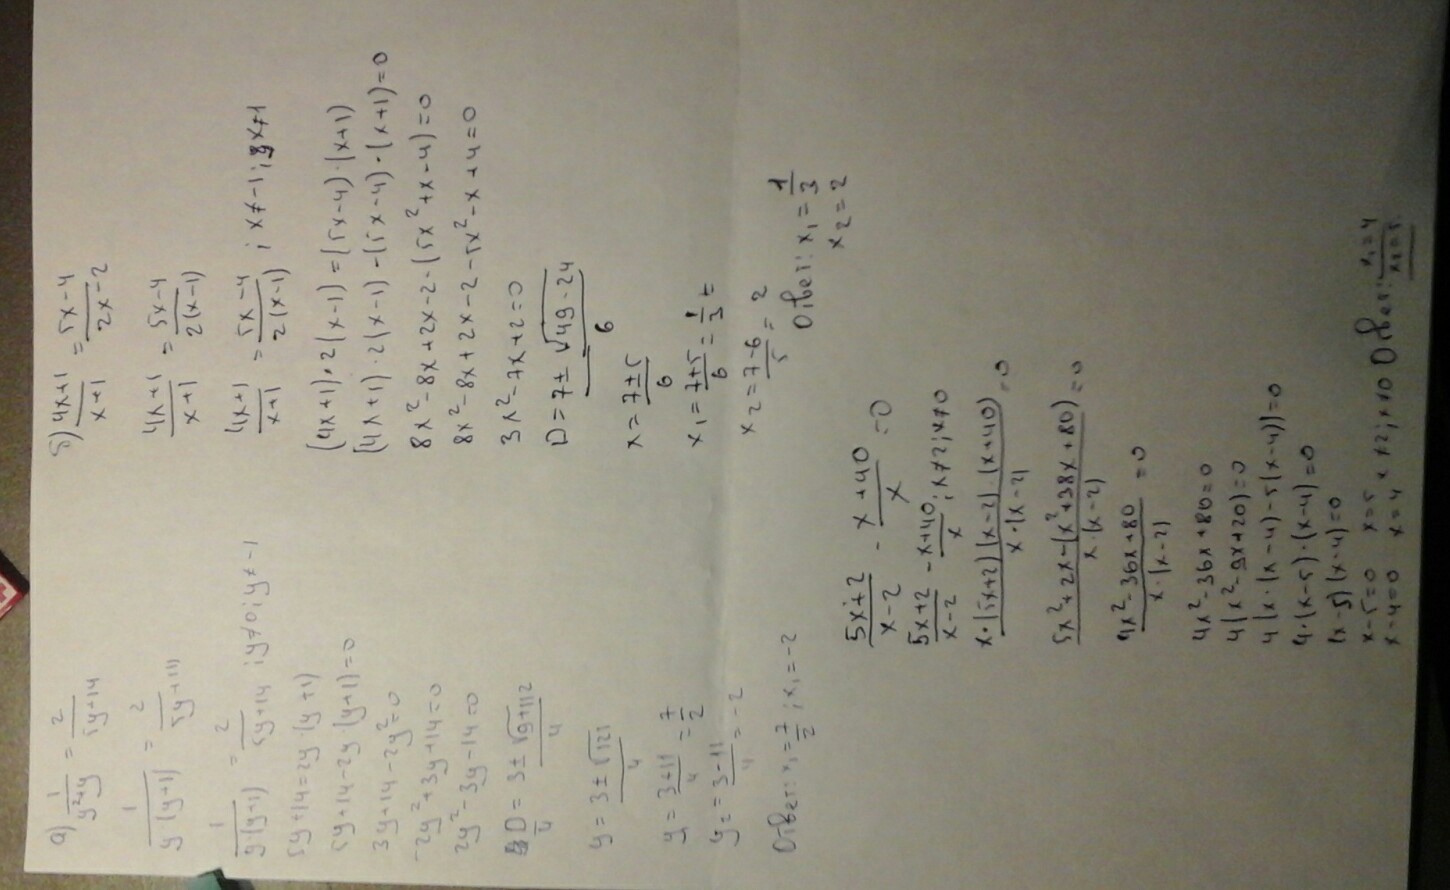 а) 1/(y²+y) = 2/(5y+14)
1/(y(y+1)) = 2/(5y+14)
1/(y(y+1)) = 2/(5y+14) ; y≠0; y≠-1
5y+14=2y·(y+1)
5y+14-2y·(y+1)=0
3y+14-2y²=0
-2y²+3y+14=0
2y²-3y-14=0
D = 3±√9+112/4
y = 3±√121/4
y = 3+11/4 = 7/2
y₂ = 3-11/4 = -2
Ответ: x₁ = 7/2 ; x₁ = -2
б) 4x+1/x+1 = 5x-4/2x-2
4x+1/x+1 = 5x-4/2(x-1)
4x+1/x+1 = 5x-4/2(x-1) ; x≠-1; x≠1
(4x+1)·2(x-1)=(5x-4)·(x+1)
(4x+1)·2(x-1)-(5x-4)·(x+1)=0
8x²-8x+2x-2-(5x²+x-4)=0
8x²-8x+2x-2-5x²-x+4=0
3x²-7x+2=0
D=7±√49-24/6
x=7±5/6
x₁=7+5/6=1/3
x₂=7-6/5=2
Ответ: x₁=1/3
x₂=2
5x+2/x-2 - x+40/x =0
5x+2/x-2 - x+40/x ; x≠2; x≠0
x·(5x+2)(x-2)·(x+40)/x·(x-2) =0
5x²+2x-(x²+38x+80)/x·(x-2) =0
4x²-36x+80/x·(x-2) =0
4x²-36x+80=0
4(x²-9x+20)=0
4(x·(x-4)-5(x-4))=0
4·(x-5)·(x-4)=0
(x-5)(x-4)=0
x-5=0 x=5
x-4=0 x=4 x≠2; x≠0 Ответ: x₁=4
x₂=5